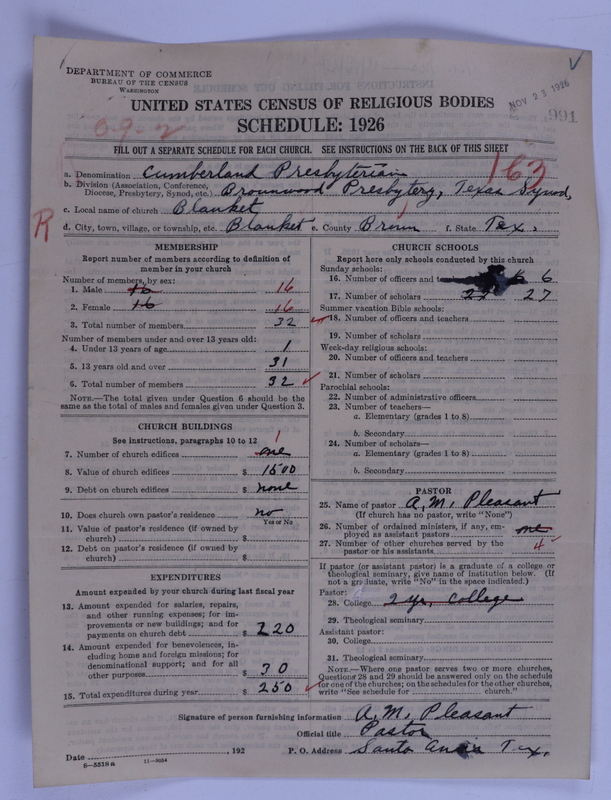 DEPARTMENT OF COMMERCE
BUREAU OF THE CENSUS
WASHINGTON
NOV 23 1926
991
UNITED STATES CENSUS OF RELIGIOUS BODIES
SCHEDULE: 1926
09-2
FILL OUT A SEPARATE SCHEDULE FOR EACH CHURCH. SEE INSTRUCTIONS ON THE BACK OF THIS SHEET
163
a. Denomination Cumberland Presbyterian
b. Division (Association, Conference, Diocese, Presbytery, Synod, etc.) Brownwood Presbytery, Texas Synod,
c. Local name of church Blanket
R
d. City, town, village, or township, etc. Blanket e. County Brown f. State Tex.
MEMBERSHIP
Report number of members according to definition of
member in your church
Number of members, by sex:
1. Male 16 16
2. Female 16 16
3. Total number of members 32
Number of members under and over 13 years old:
4. Under 13 years of age 1
5. 13 years old and over 31
6. Total number of members 32
NOTE.—The total given under Question 6 should be
same as the total of males and females given under Question 3.
CHURCH BUILDINGS
See instructions, paragraphs 10 to 12
7. Number of church edifices one 1
8. Value of church edifices $ 1500
9. Debt on church edifices $ none
10. Does church own pastor's residence? no
Yes or No
11. Value of pastor's residence (if owned by
church) $
12. Debt on pastor's residence (if owned by
church) $
EXPENDITURES
Amount expended by your church during last fiscal year
13. Amount expended for salaries, repairs,
and other running expenses; for im-
provements or new buildings; and for
payments on church debt $ 220
14. Amount expended for benevolences, in-
cluding home and foreign missions; for
denominational support; and for all
other purposes $ 30
15. Total expenditures during year $ 250
CHURCH SCHOOLS
Report here only schools conducted by this church
Sunday schools:
16. Number of officers and 6
17. Number of scholars 27 27
Summer vacation Bible schools:
18. Number of officers and teachers
19. Number of scholars
Week-day religious schools:
20. Number of officers and teachers
21. Number of scholars
Parochial schools:
22. Number of administrative officers
23. Number of teachers—
a. Elementary (grades 1 to 8)
b. Secondary
24. Number of scholars—
a. Elementary (grades 1 to 8)
b. Secondary
PASTOR
25. Name of pastor A. M. Pleasant
(If church has no pastor, write "None")
26. Number of ordained ministers, if any, em-
ployed as assistant pastors one
27. Number of other churches served by the
pastor or his assistants 4
If pastor (or assistant pastor) is a graduate of a college or
theological seminary, give name of institution below. (If
not a graduate, write "No" in the space indicated.)
Pastor:
28. College 2 yr. College
29. Theological seminary
Assistant pastor:
30. College
31. Theological seminary
NOTE.—Where one pastor serves two or more churches,
Questions 28 and 29 should be answered only on the schedule
for one of the churches; on the schedules for the other churches,
write "See schedule for church."
Signature of person furnishing information A. M. Pleasant
Official title Pastor
Date , 192 P. O. Address Santa Anna Tex.
8-5518a 11-9054